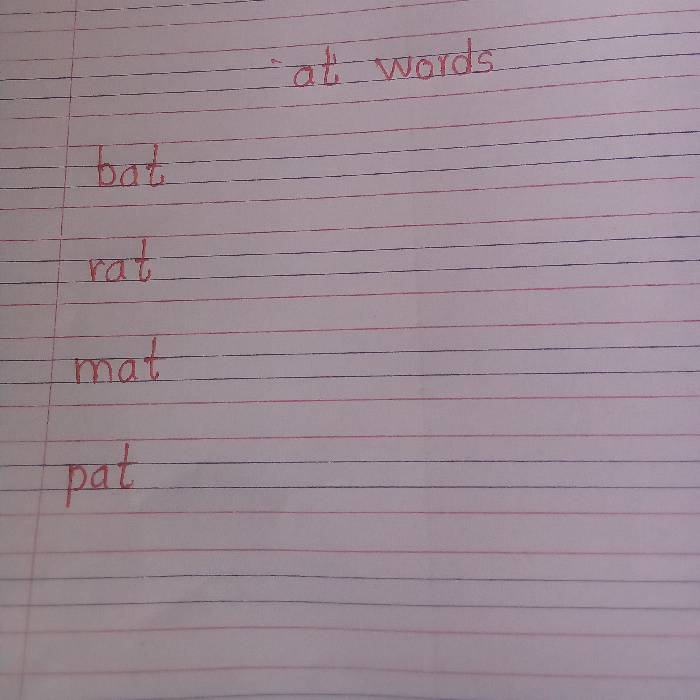 -at words
bat
rat
mat
pat